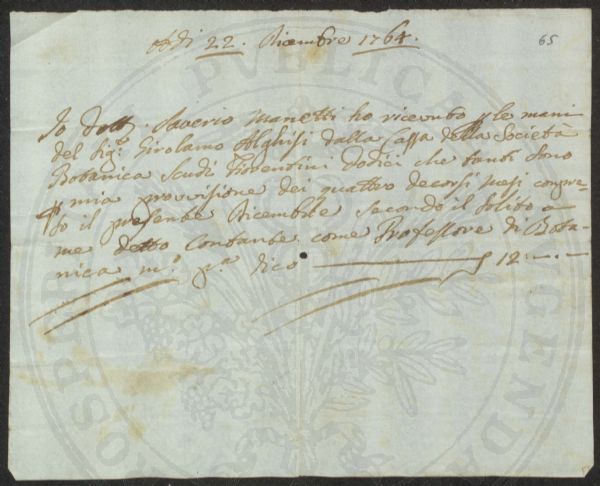 Adi 22. Dicembre 1764.
65
Io Dott. Saverio Manetti ho ricevuto p le mani
del Sig.r Girolamo Alghisi dalla Cassa della Società
Botanica Scudi Fiorentini Dodici che tanti sono
p mia provvisione dei quattro decorsi mesi compre-
so il presente Dicembre secondo il solito a
me detto contante come Professore di Bota-
nica m.o p.a dico 12
PUBLICA